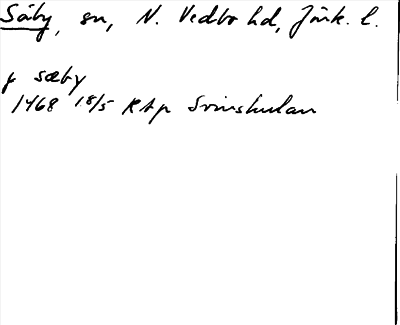 Säby, sn, N. Vedbo hd, Jönk. l.
j sæby
1468 18/5 RAp Svinshulan